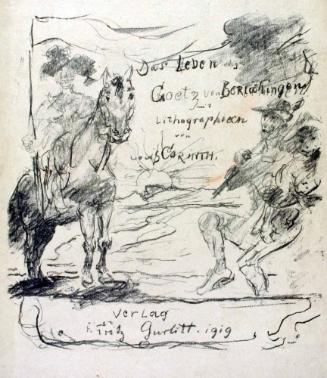 Das Leben des
Goetz von Berlichingen
mit
Lithographieen
von
Lovis Corinth.
Verlag
Fritz Gurlitt. 1919